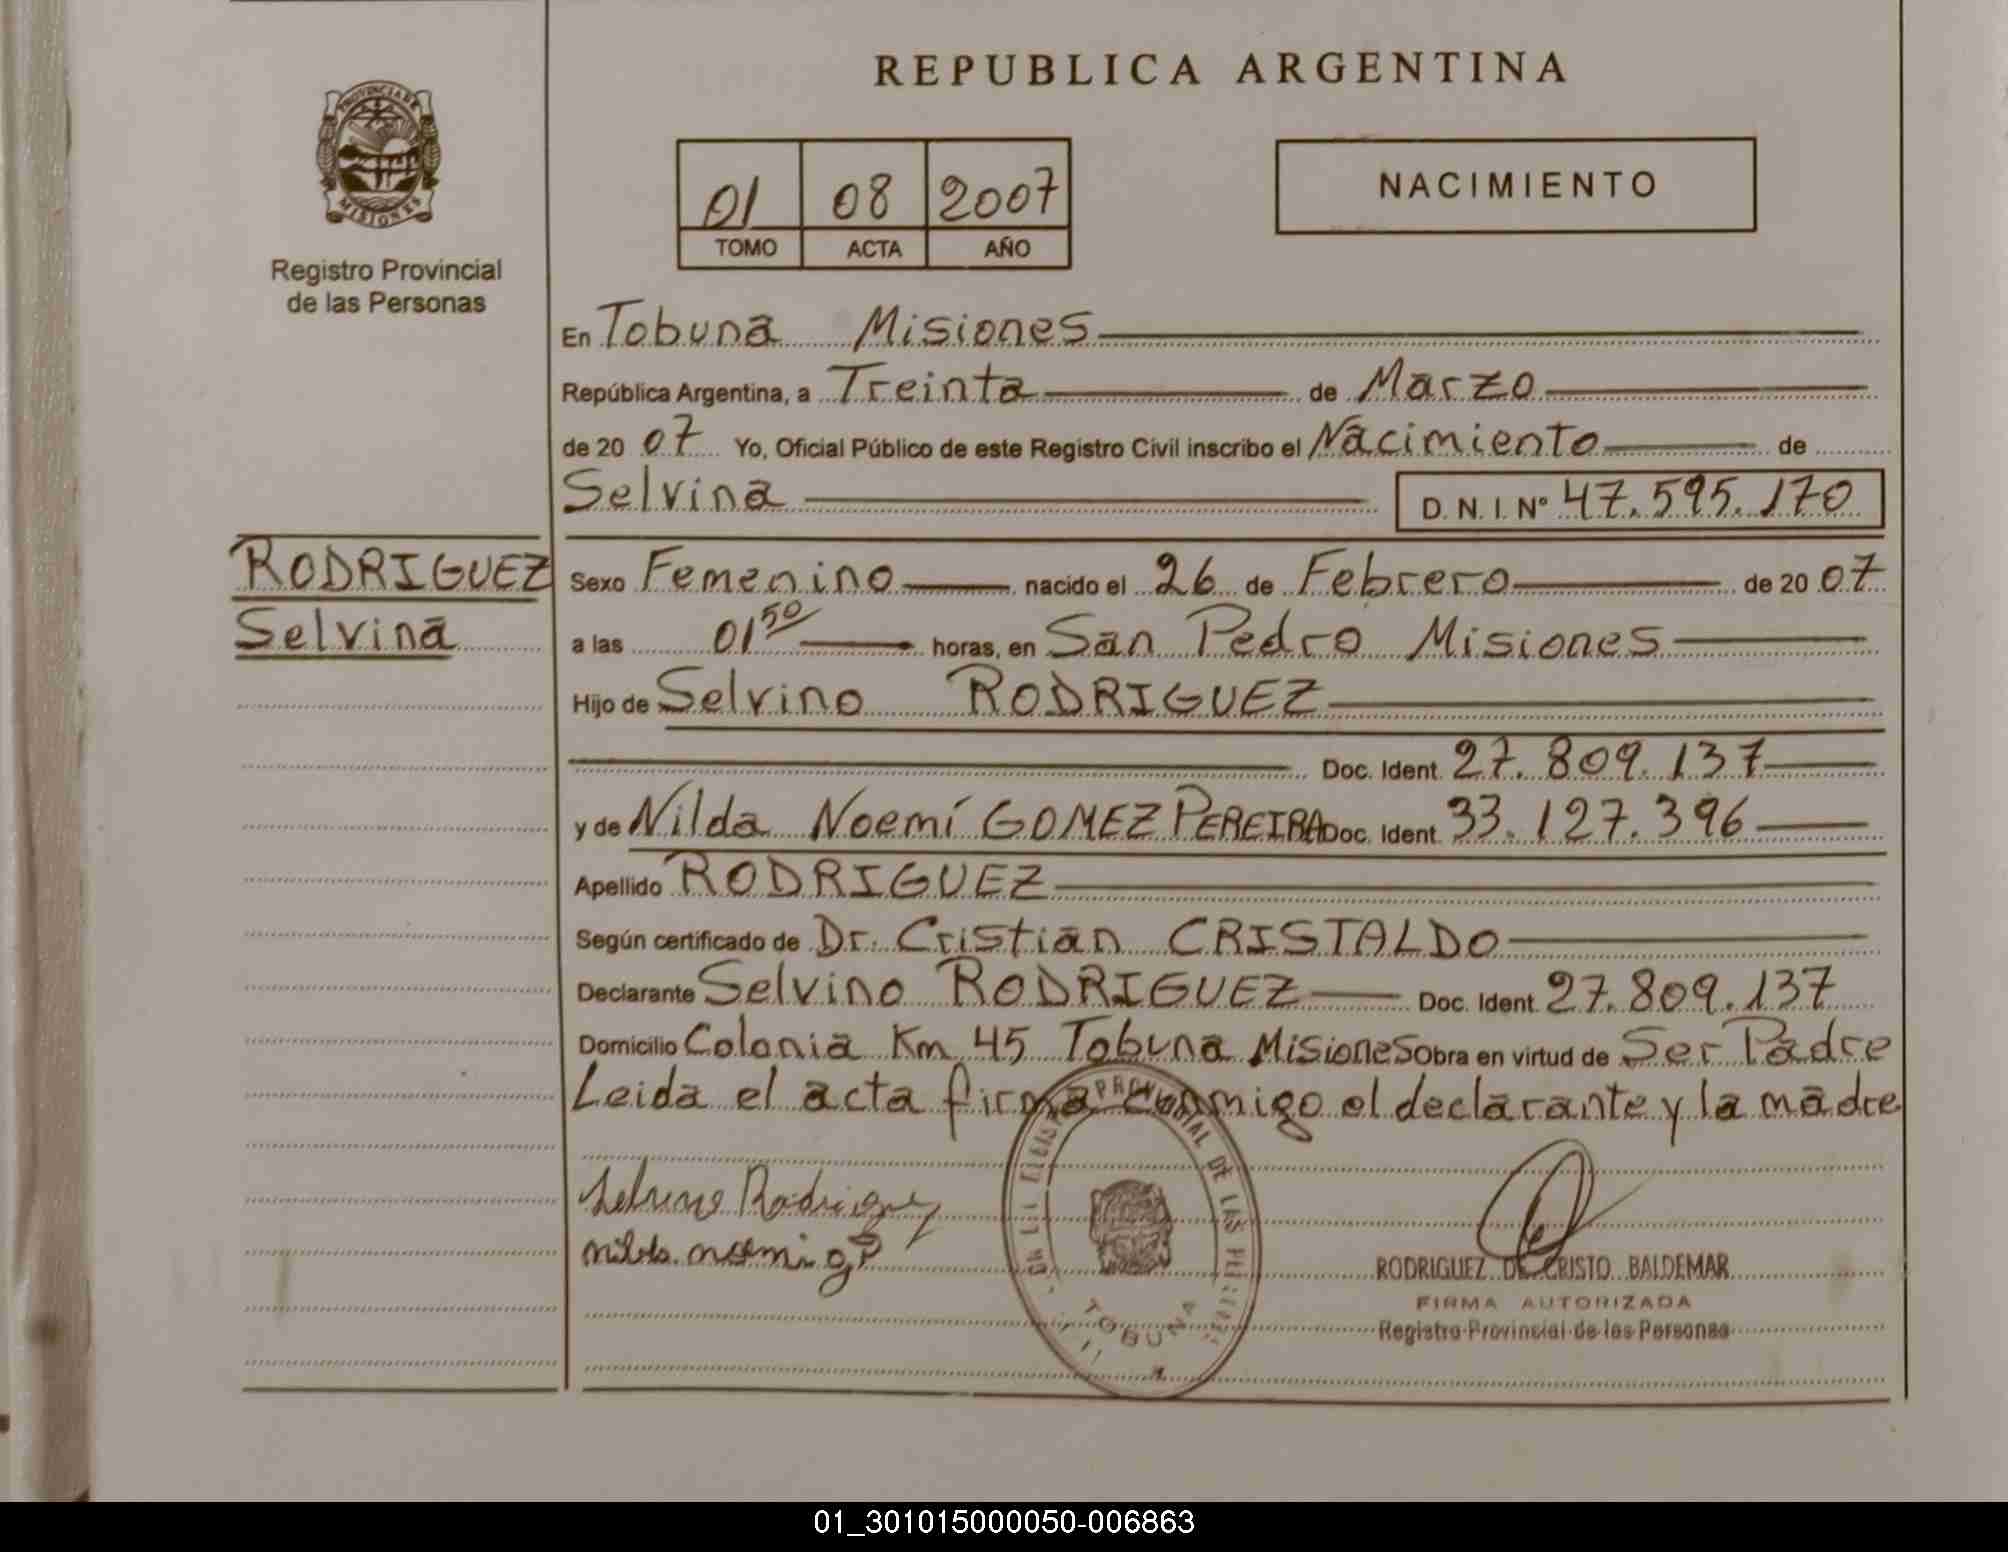 REPUBLICA ARGENTINA
PROVINCIA DE
MISIONES
Registro Provincial
de las Personas
01 08 2007
TOMO ACTA AÑO
NACIMIENTO
En Tobuna Misiones
República Argentina, a Treinta de Marzo
de 20 07 Yo, Oficial Público de este Registro Civil inscribo el Nacimiento de
Selvina D. N. I. Nº 47.595.170
RODRIGUEZ
Selvina
Sexo Femenino nacido el 26 de Febrero de 20 07
a las 01 50 horas, en San Pedro Misiones
Hijo de Selvino RODRIGUEZ
Doc. Ident. 27.809.137
y de Nilda Noemí GOMEZ PEREIRA Doc. Ident. 33.127.396
Apellido RODRIGUEZ
Según certificado de Dr. Cristian CRISTALDO
Declarante Selvino RODRIGUEZ Doc. Ident. 27.809.137
Domicilio Colonia Km 45 Tobuna Misiones Obra en virtud de Ser Padre
Leida el acta firma conmigo el declarante y la madre
Selvino Rodriguez
nilda noemi g P
PROVINCIAL DE LAS
TOBUNA
RODRIGUEZ DE CRISTO BALDEMAR
FIRMA AUTORIZADA
Registro Provincial de las Personas
01_301015000050-006863